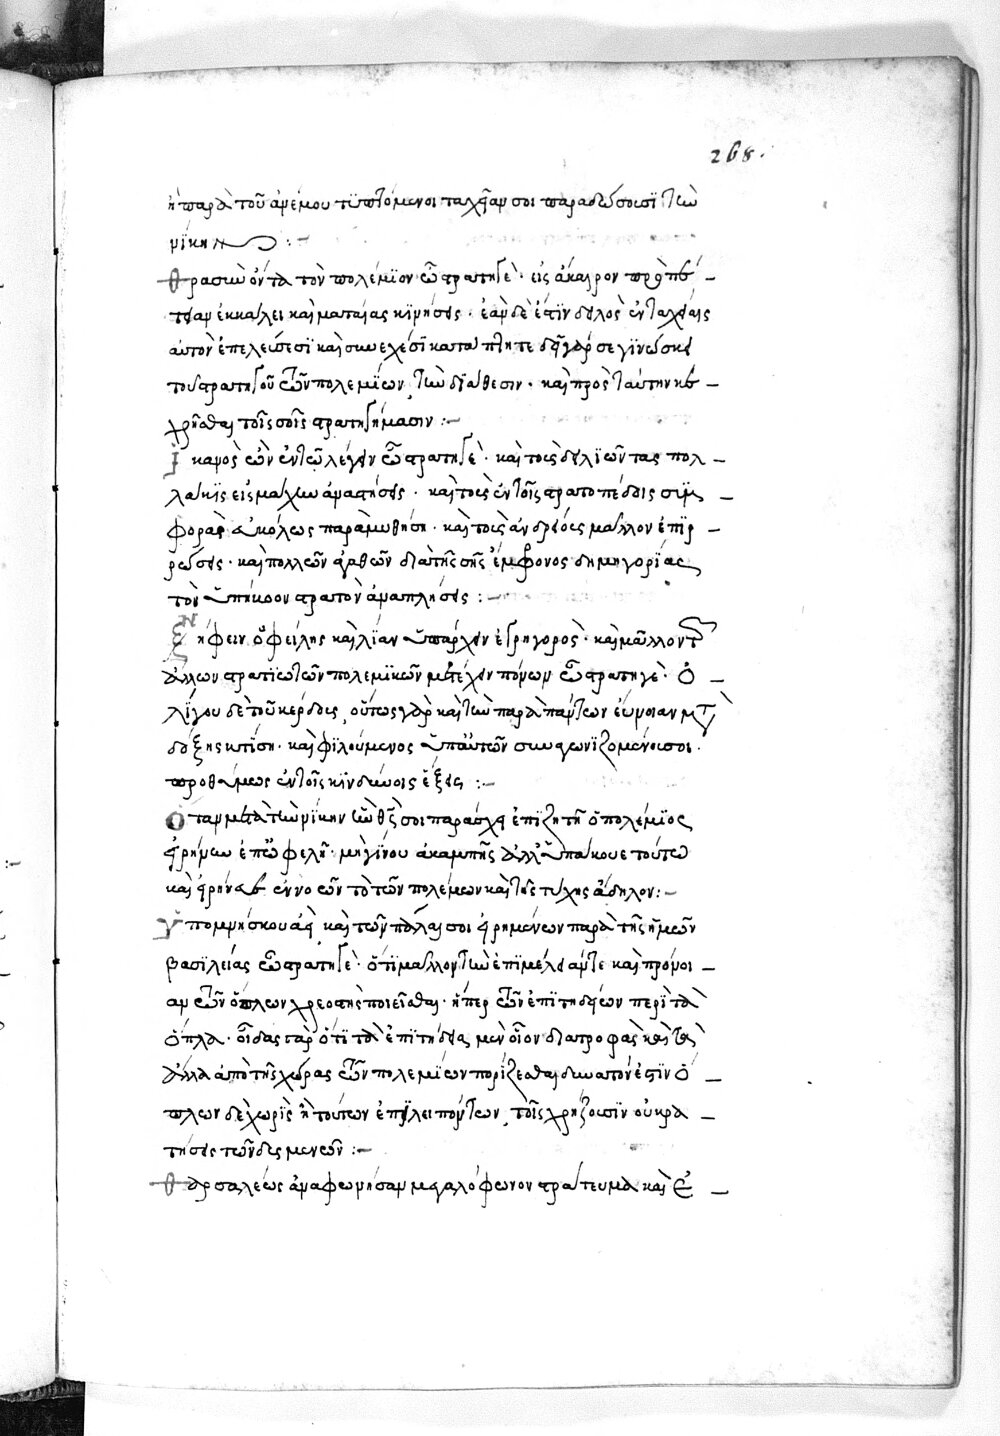 268.
ἢ παρὰ τοῦ ἀνέμου τυπτόμενοι ταχέως σοι παραδώσουσι τὴν
νίκην :-
Θρασὺν ὄντα τὸν πολέμϊον ὦ στρατηγὲ · εἰς ἄκαιρον προπέ
τειαν ἐκκάλει καὶ ματαίας κϊνήσεις · ἐὰν δὲ ἐστϊν δειλὸς ἐν ταχείαις
αὐτὸν ἐπελεύσεσϊ καὶ συνεχέσϊ κατάπληττε δεῖ γάρ σε γϊνώσκειν
τοῦ στρατηγοῦ τῶν πολεμϊων τὴν διάθεσιν · καὶ πρὸς ταύτην κε
χρῆσθαι τοῖς σοῖς στρατηγήμασιν :-
Ἱκανὸς ὢν ἐν τῷ λέγειν ὦ στρατηγὲ · καὶ τοὺς δειλιῶντας πολ
λάκϊς εἰς μάχην ἀναστήσεις · καὶ τοὺς ἐν τοῖς στρατοπέδοις συμ
φορὰς εὐκόλως παραμυθήσῃ · καὶ τοὺς ἀνδρείους μᾶλλον ἐπϊρ
ρώσεις · καὶ πολλῶν ἀγαθῶν διὰ τῆς σῆς ἔμφρονος δημηγορίας
τὸν ὑπήκοον στρατὸν ἀναπλήσεις :-
Νήφειν ὀφείλης καὶ λίαν ὑπάρχειν ἐγρήγορος · καὶ μᾶλλον τῶν
ἄλλων στρατϊωτῶν πολεμϊκῶν μετέχειν πόνων ὦ στρατηγέ · ὀ
λίγου δὲ τοῦ κέρδους οὕτως γὰρ καὶ τὴν παρὰ πάντων εὔνοιαν μετὰ
δόξης κτίσῃ · καὶ φϊλούμενος ὑπ' αὐτῶν συναγωνϊζομένους σοι
προθύμως ἐν τοῖς κϊνδύνοις ἕξεις :-
Ὅταν μετὰ τὴν νίκην ἣν Θεός σοι παράσχῃ ἐπϊζητῇ ὁ πολέμϊος
εἰρήνην ἐπωφελῆ · μὴ γίνου ἀκαμπὴς ἀλλ' ὑπάκουε τούτῳ
καὶ εἰρήνευε ἐννοῶν τὸ τῶν πολέμων καὶ τῆς τύχης ἄδηλον :-
Ὑπομνήσκου ἀεὶ καὶ τῶν πάλαι σοι εἰρημένων παρὰ τῆς ἡμῶν
βασϊλείας ὦ στρατηγὲ · ὅτι μᾶλλον τὴν ἐπϊμέλειάν τε καὶ πρόνοι
αν τῶν ὅπλων χρεοστῆς ποιεῖσθαι · ἤπερ τῶν ἐπϊτηδείων περὶ τὰ
ὅπλα · οἶδας γὰρ ὅτϊ τὰ ἐπϊτήδεια μὲν οἷον διατροφὰς καὶ τὰ
ἄλλα ἀπὸ τῆς χώρας τῶν πολεμϊων πορίζεσθαι δυνατόν ἐστϊν ὅ
πλων δὲ χωρὶς ἢ τούτων ἐπϊλειπόντων τοῖς χρήζουσϊν οὐ κρα
τήσεις τῶν δυσμενῶν :-
Θαρσαλέως ἀναφωνήσαν μεγαλόφωνον στράτευμα καὶ ἐ